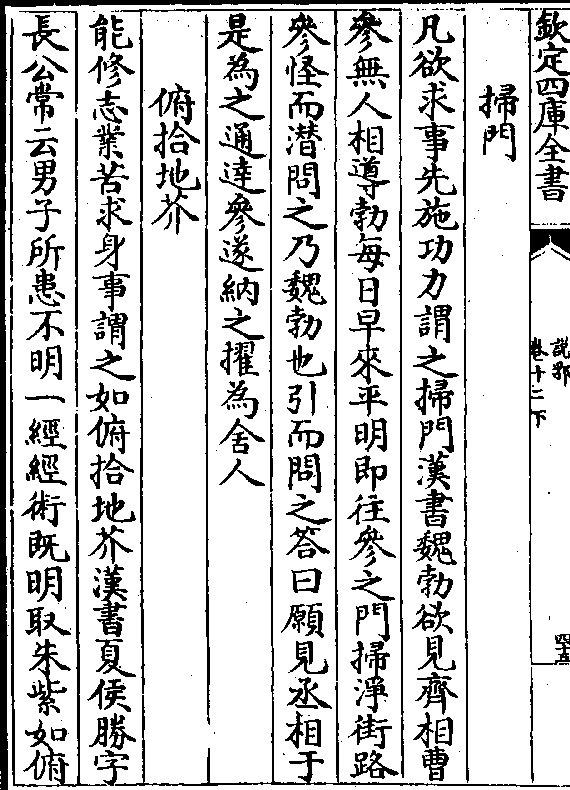 欽定四庫全書
說郛
卷十二下
四十五
掃門
凡欲求事先施功力謂之掃門漢書魏勃欲見齊相曹
參無人相導勃每日早來平明即往參之門掃淨街路
參怪而潜問之乃魏勃也引而問之答曰願見丞相于
是為之通達參遂納之擢為舍人
俯拾地芥
能修志業苦求身事謂之如俯拾地芥漢書夏侯勝字
長公常云男子所患不明一經經術既明取朱紫如俯